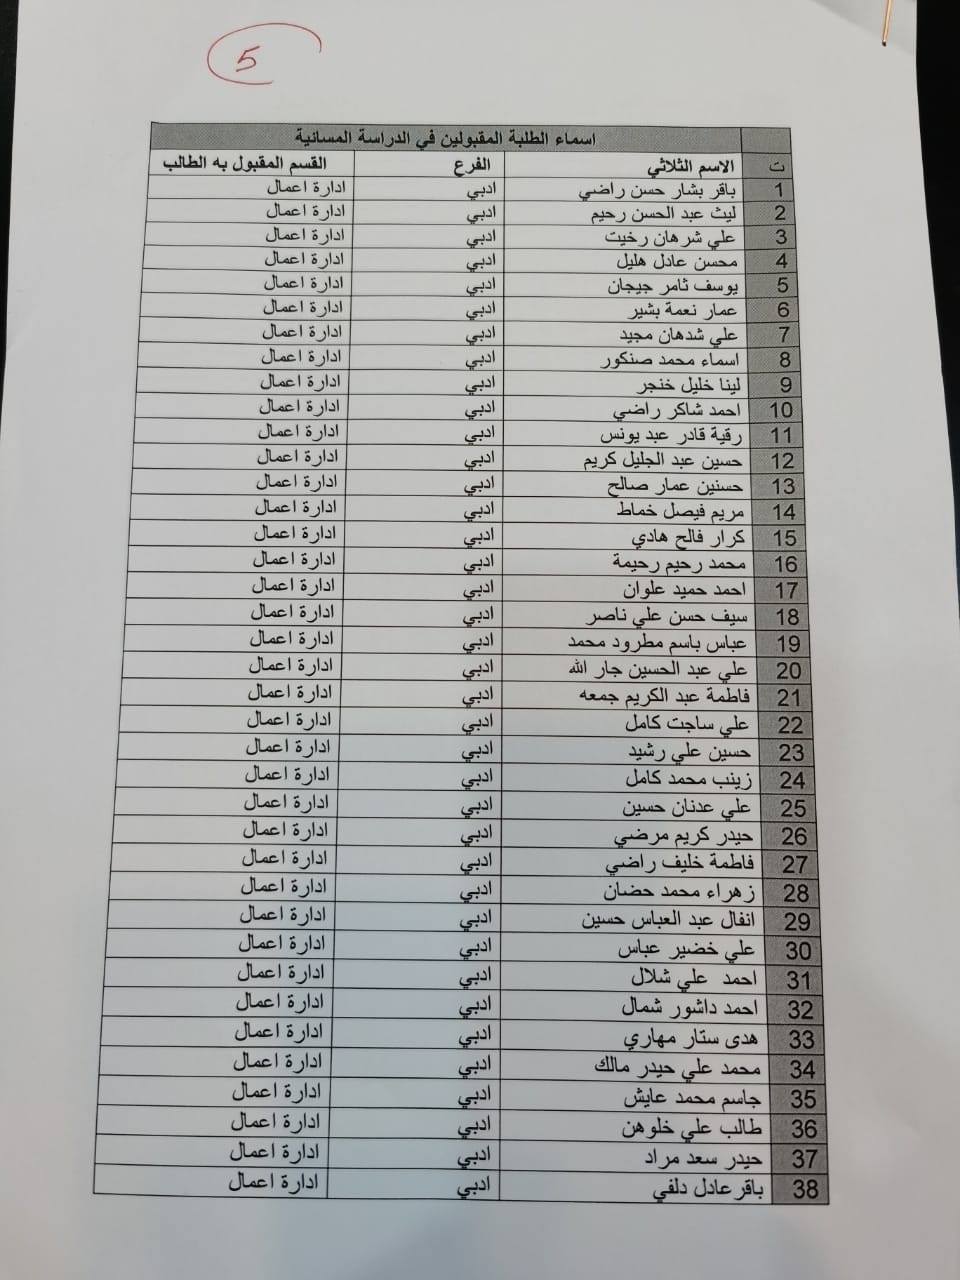 5
اسماء الطلبة المقبولين في الدراسة المسائية
ت الاسم الثلاثي الفرع القسم المقبول به الطالب
1 باقر بشار حسن راضي ادبي ادارة اعمال
2 ليث عبد الحسن رحيم ادبي ادارة اعمال
3 علي شرهان رخيت ادبي ادارة اعمال
4 محسن عادل هليل ادبي ادارة اعمال
5 يوسف ثامر جيجان ادبي ادارة اعمال
6 عمار نعمة بشير ادبي ادارة اعمال
7 علي شدهان مجيد ادبي ادارة اعمال
8 اسماء محمد صنكور ادبي ادارة اعمال
9 لينا خليل خنجر ادبي ادارة اعمال
10 احمد شاكر راضي ادبي ادارة اعمال
11 رقية قادر عبد يونس ادبي ادارة اعمال
12 حسين عبد الجليل كريم ادبي ادارة اعمال
13 حسنين عمار صالح ادبي ادارة اعمال
14 مريم فيصل خماط ادبي ادارة اعمال
15 كرار فالح هادي ادبي ادارة اعمال
16 محمد رحيم رحيمة ادبي ادارة اعمال
17 احمد حميد علوان ادبي ادارة اعمال
18 سيف حسن علي ناصر ادبي ادارة اعمال
19 عباس باسم مطرود محمد ادبي ادارة اعمال
20 علي عبد الحسين جار الله ادبي ادارة اعمال
21 فاطمة عبد الكريم جمعه ادبي ادارة اعمال
22 علي ساجت كامل ادبي ادارة اعمال
23 حسين علي رشيد ادبي ادارة اعمال
24 زينب محمد كامل ادبي ادارة اعمال
25 علي عدنان حسين ادبي ادارة اعمال
26 حيدر كريم مرضي ادبي ادارة اعمال
27 فاطمة خليف راضي ادبي ادارة اعمال
28 زهراء محمد حضان ادبي ادارة اعمال
29 انفال عبد العباس حسين ادبي ادارة اعمال
30 علي خضير عباس ادبي ادارة اعمال
31 احمد علي شلال ادبي ادارة اعمال
32 احمد داشور شمال ادبي ادارة اعمال
33 هدى ستار مهاري ادبي ادارة اعمال
34 محمد علي حيدر مالك ادبي ادارة اعمال
35 جاسم محمد عايش ادبي ادارة اعمال
36 طالب علي خلوهن ادبي ادارة اعمال
37 حيدر سعد مراد ادبي ادارة اعمال
38 باقر عادل دلفي ادبي ادارة اعمال